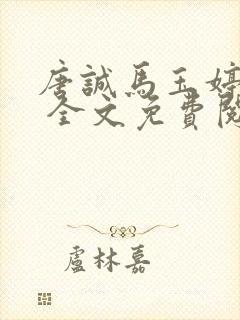 唐誠馬玉婷
全文免費閱
盧林嘉